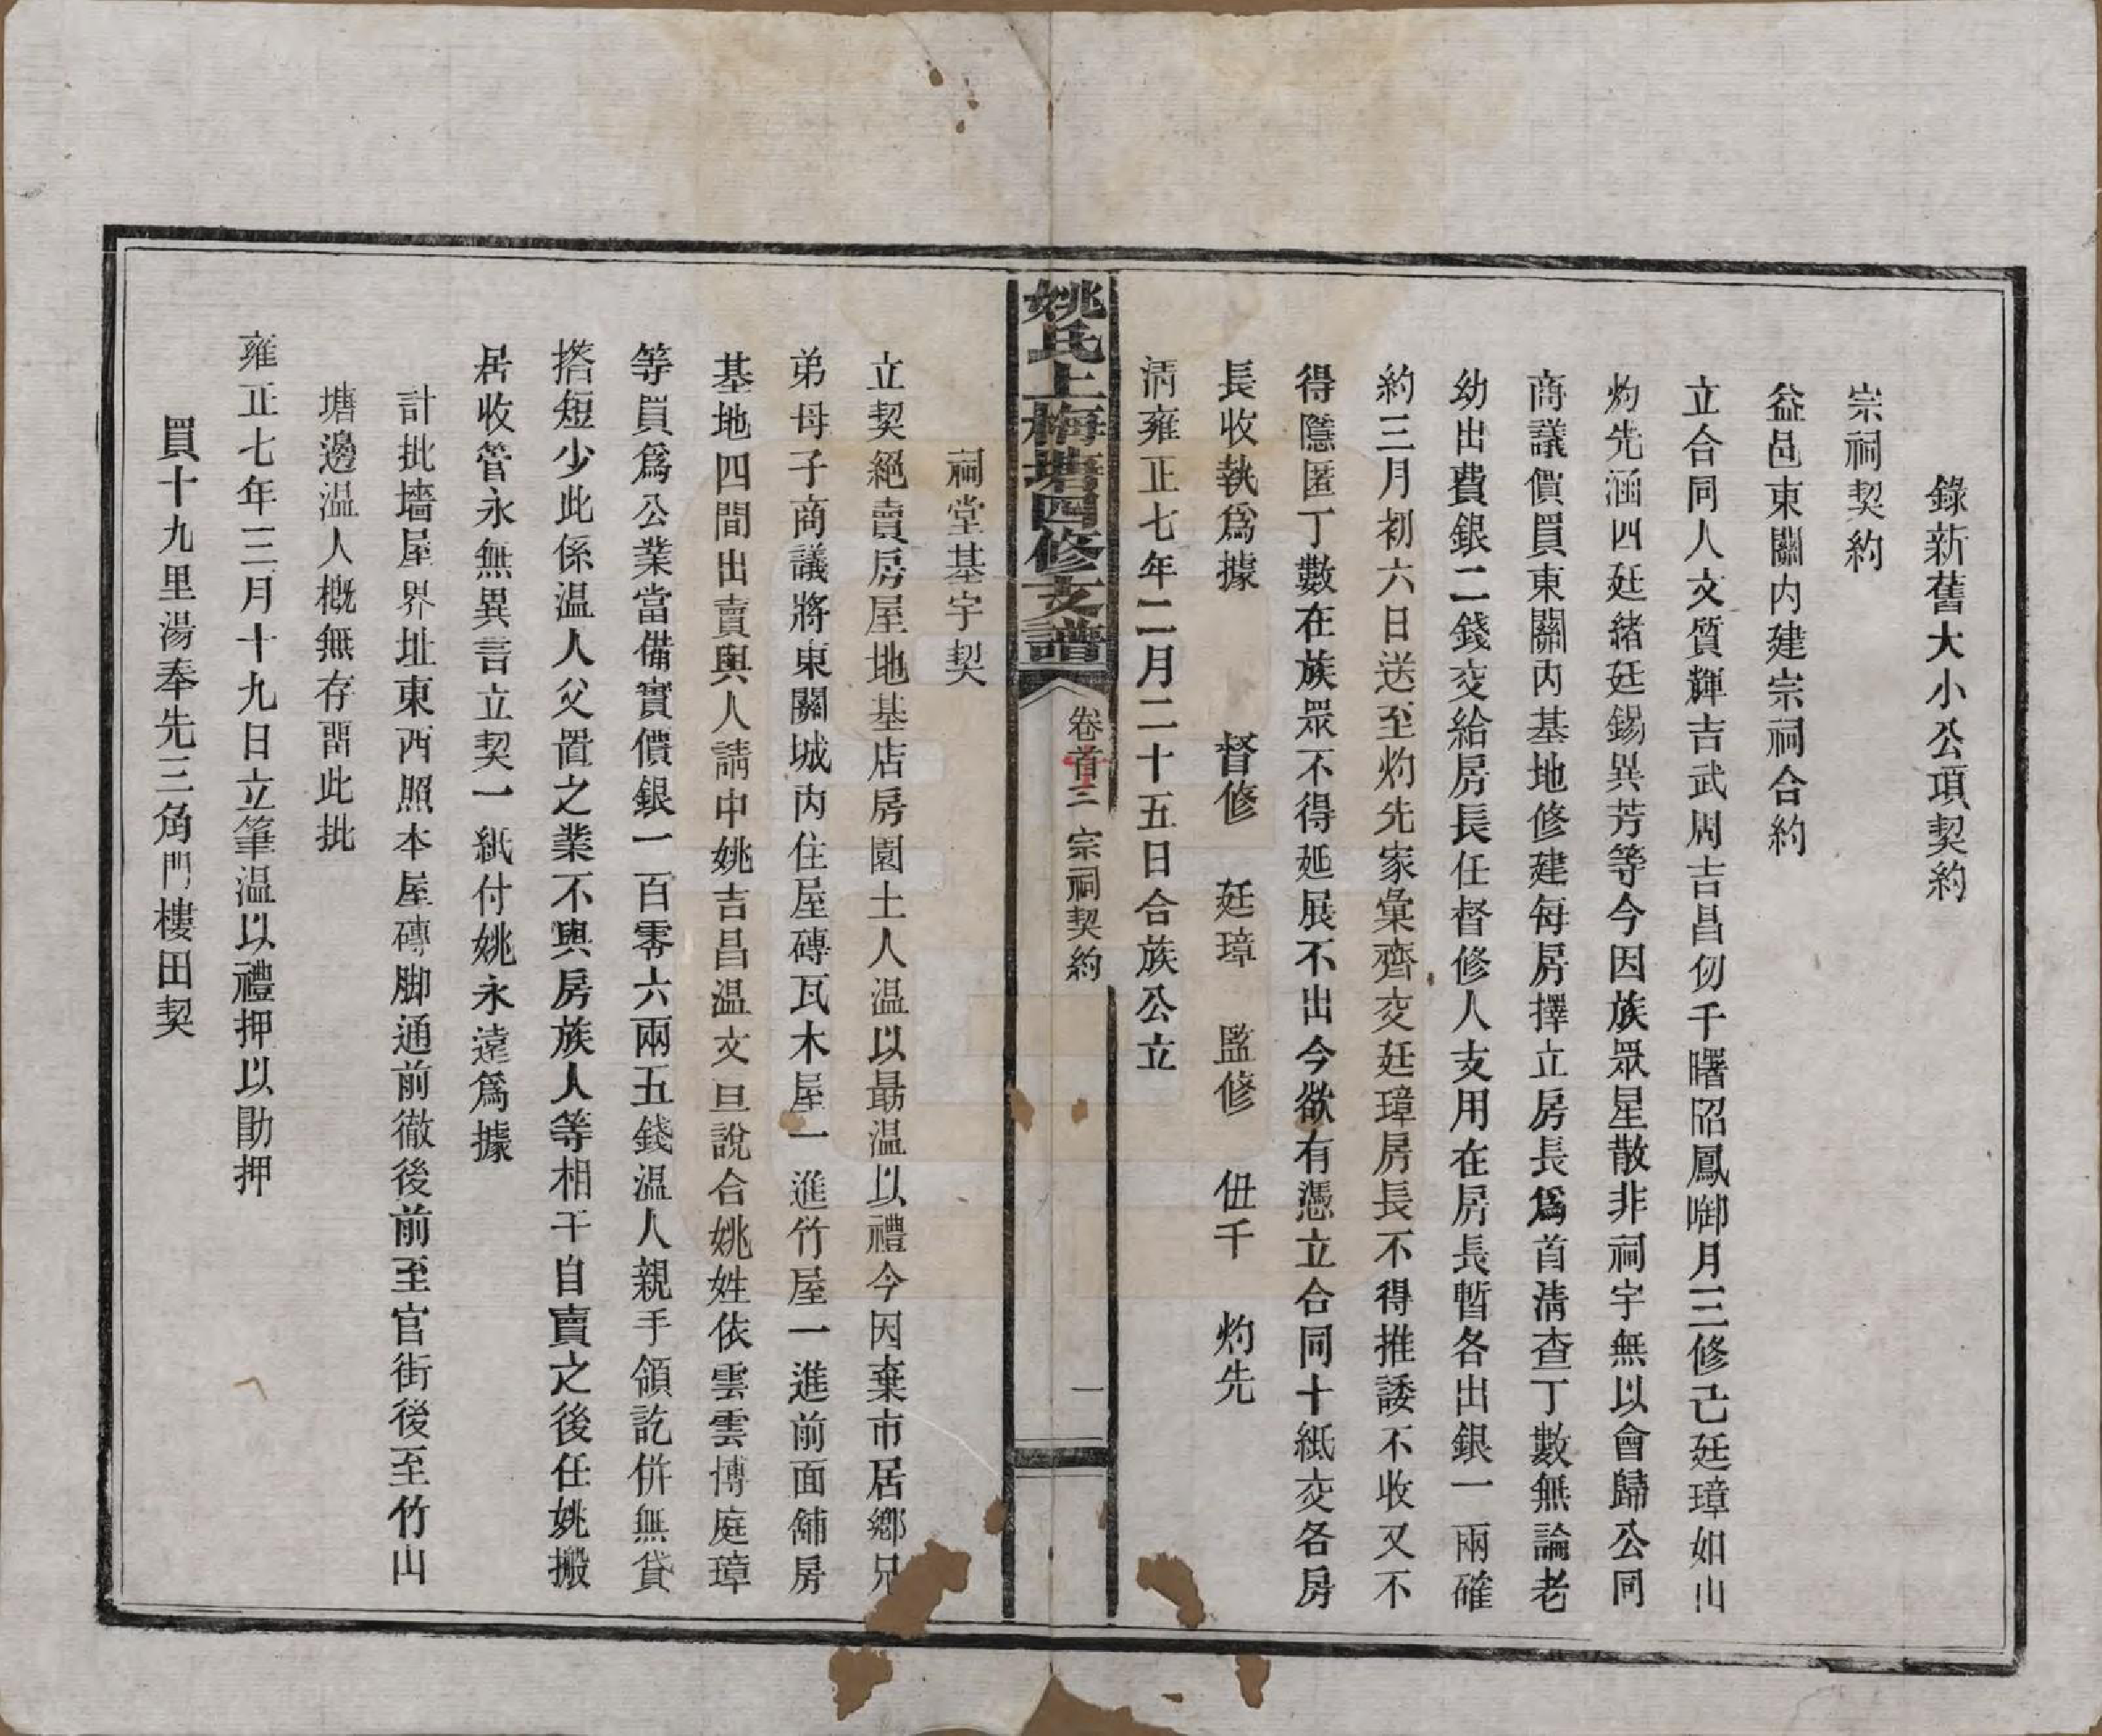 錄新舊大小公項契約
宗祠契約
益邑東關内建宗祠合約
立合同人文質輝吉武周吉昌仞千曙昭鳳啣月三修己廷璋如山
灼先涵四廷緒廷錫異芳等今因族眾星散非祠宇無以會歸公同
商議價買東關内基地修建每房擇立房長爲首清查丁數無論老
幼出費銀二錢交給房長任督修人支用在房長暫各出銀一兩確
約三月初六日送至灼先家彙齊交廷璋房長不得推諉不收又不
得隱匿丁數在族眾不得延展不出今欲有憑立合同十紙交各房
長收執爲據　督修　廷璋　監修　伹千　灼先
清雍正七年二月二十五日合族公立
姚氏上梅塘四修支譜　卷首三　宗祠契約　一
祠堂基宇契
立契絕賣房屋地基店房園土人温以最温以禮今因棄市居鄉兄
弟母子商議將東關城内住屋磚瓦木屋一進竹屋一進前面舖房
基地四間出賣與人請中姚吉昌温文旦說合姚姓依雲雲博庭璋
等買爲公業當備實價銀一百零六兩五錢温人親手領訖併無貸
搭短少此係温人父置之業不與房族人等相干自賣之後任姚搬
居收管永無異言立契一紙付姚永遠爲據
計批墻屋界址東西照本屋磚脚通前徹後前至官街後至竹山
塘邊温人概無存畱此批
雍正七年三月十九日立筆温以禮押以勛押
買十九里湯奉先三角門樓田契